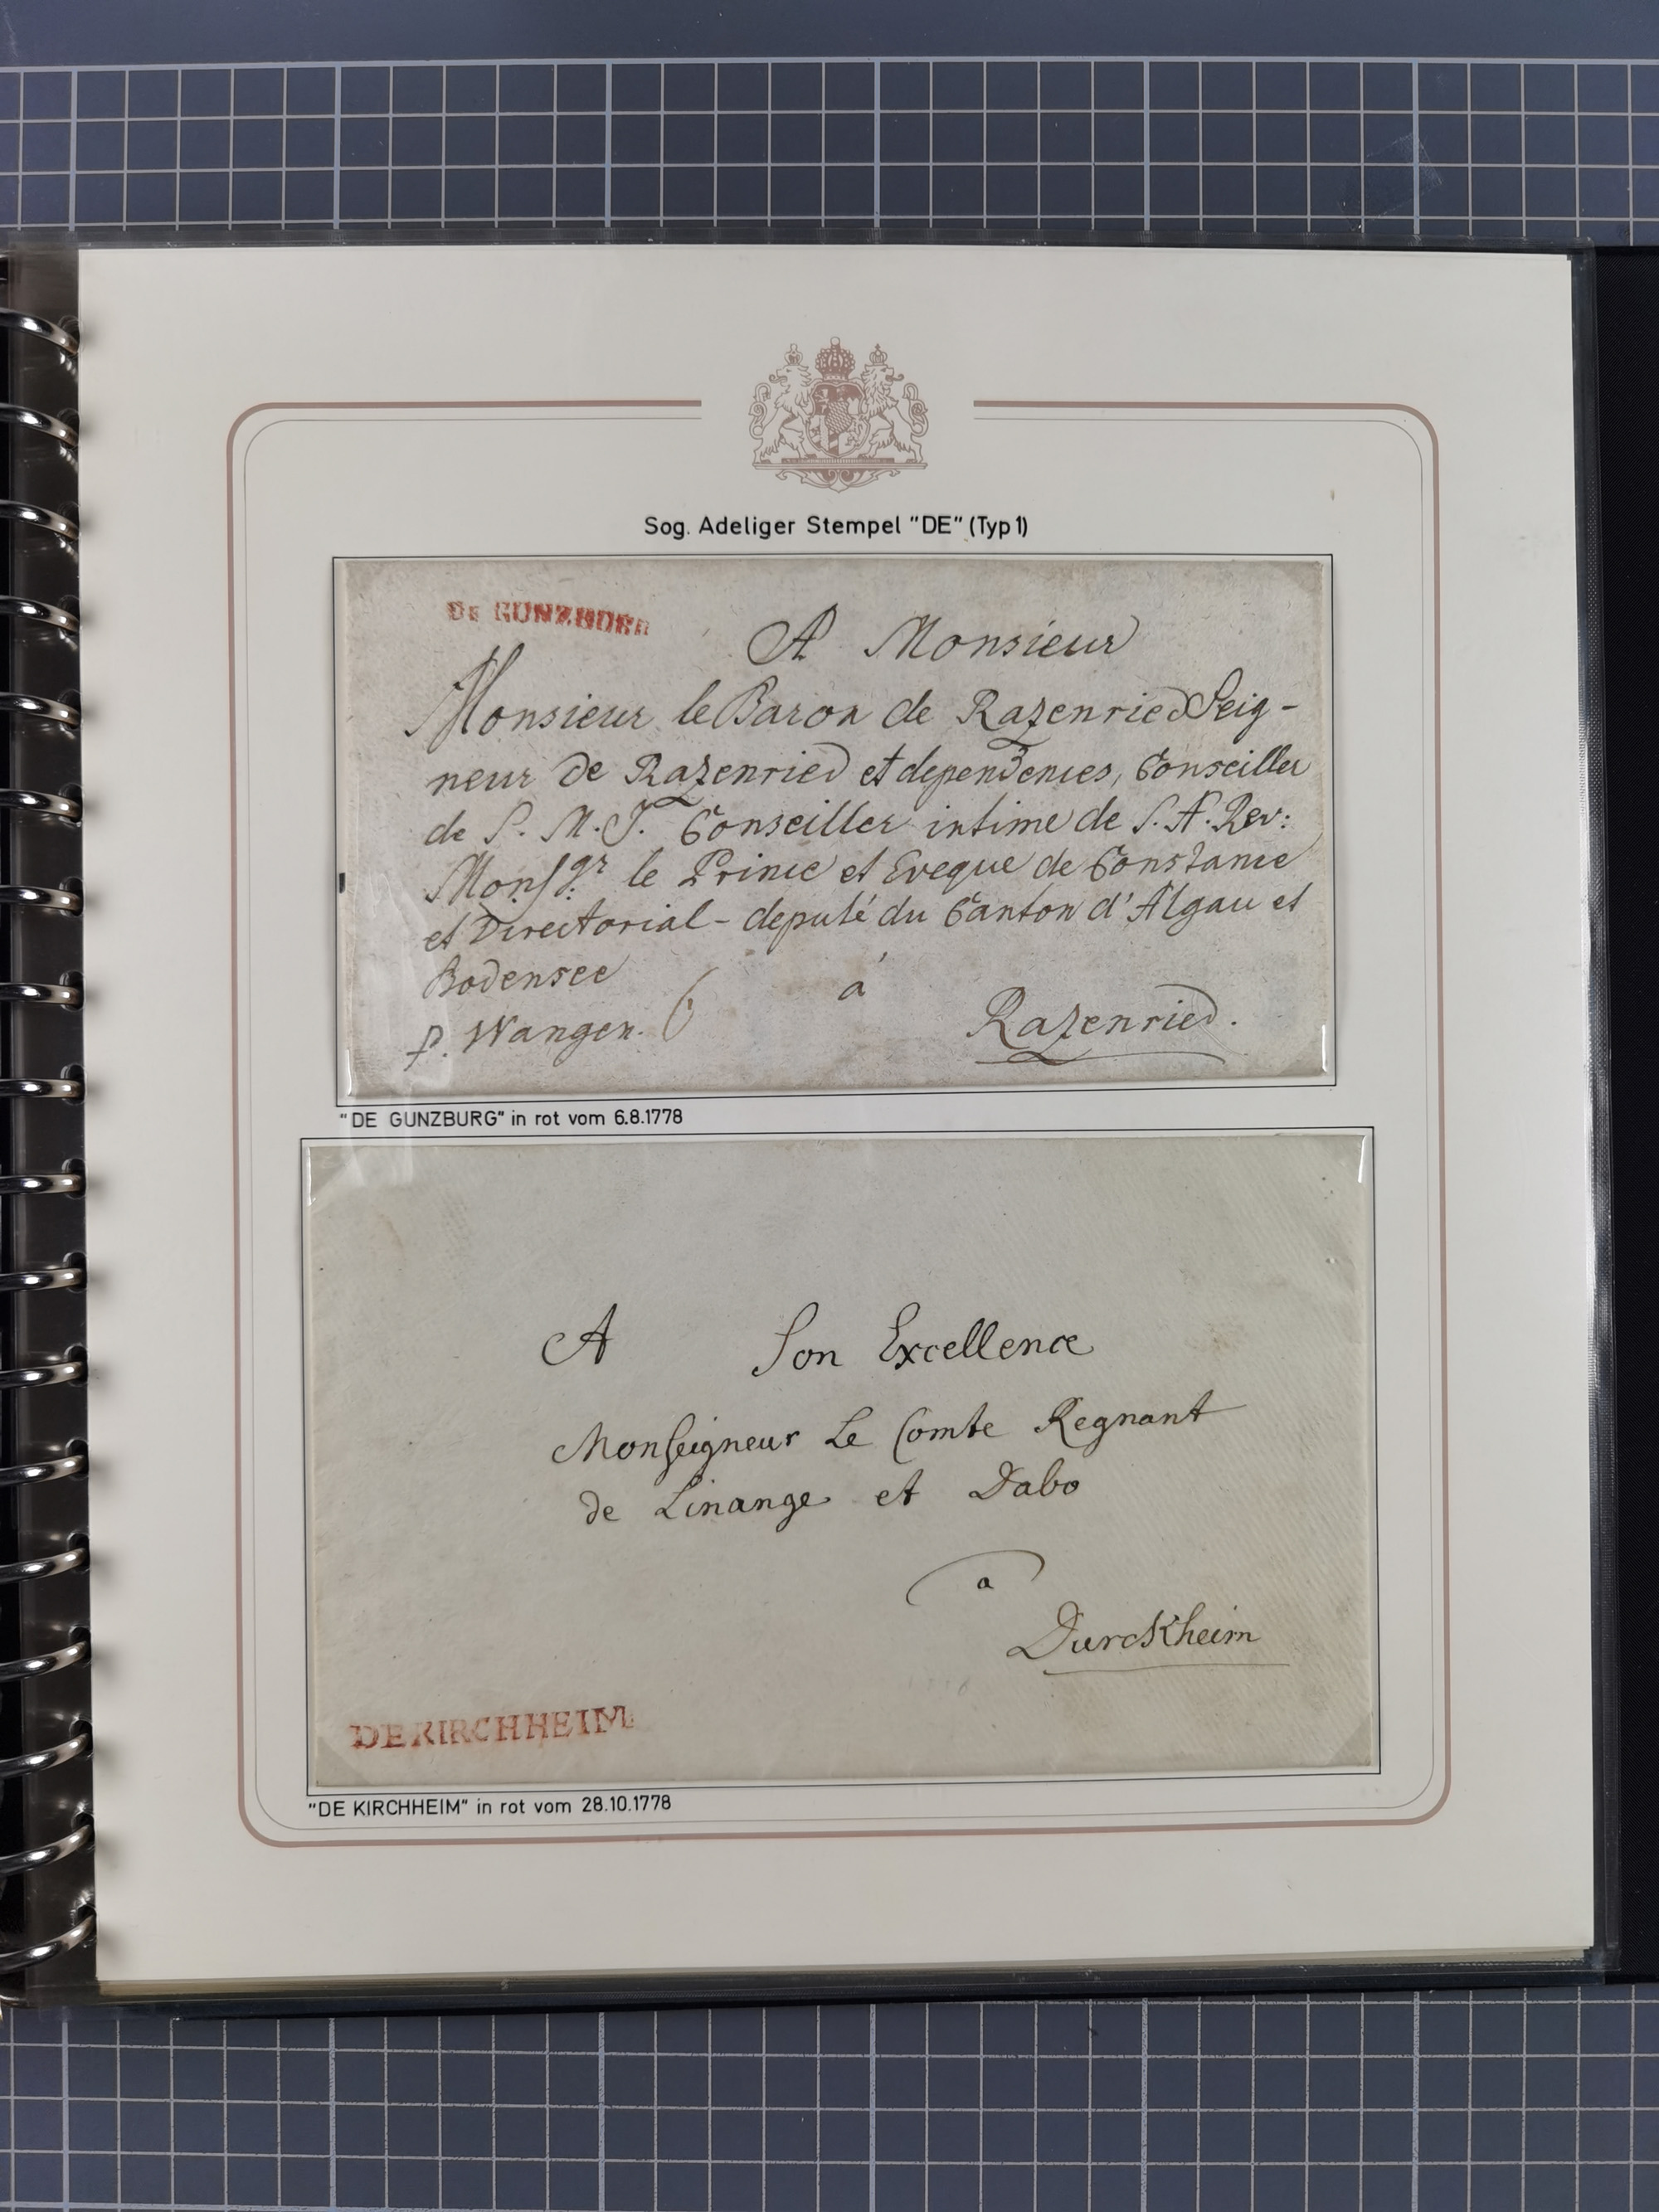 Sog. Adeliger Stempel "DE" (Typ 1)
DE GUNZBURG
A Monsieur
Monsieur le Baron de Razenried Seig-
neur de Razenried et dependences, Conseiller
de S. M. J. Conseiller intime de S. A. Rev:
Monsgr. le Prince et Eveque de Constance
et Directorial-deputé du Canton d'Algau et
Bodensee
á
p. Wangen. 6
Razenried.
"DE GUNZBURG" in rot vom 6.8.1778
A Son Excellence
Monseigneur Le Comte Regnant
de Linange et Dabo
a
Durckheim
DE KIRCHHEIM
"DE KIRCHHEIM" in rot vom 28.10.1778